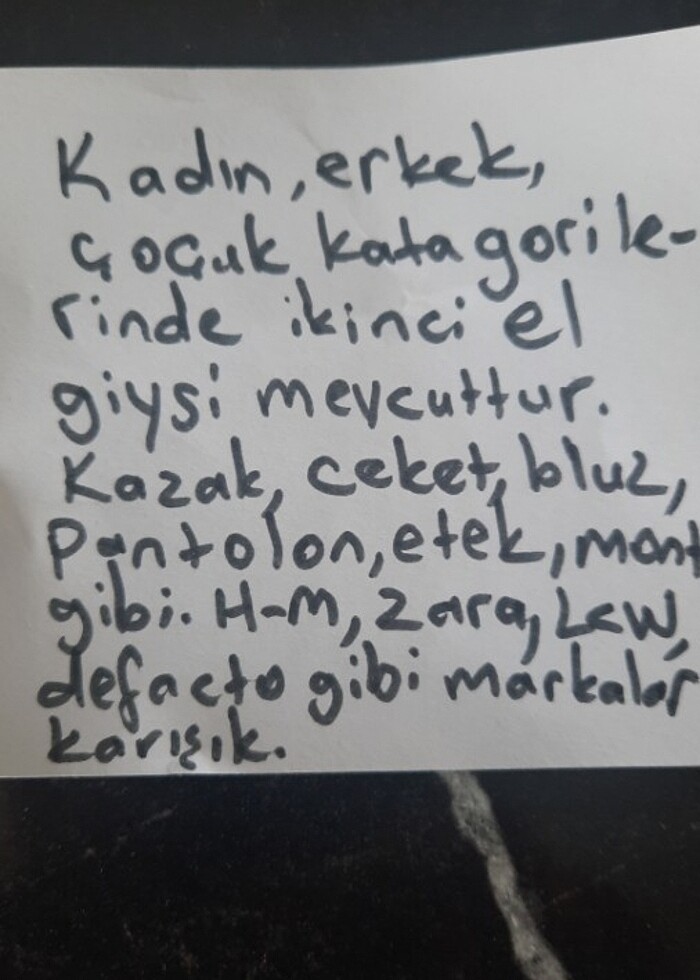 Kadın, erkek,
çoçuk katagorile-
rinde ikinci el
giysi mevcuttur.
Kazak, ceket, bluz,
Pantolon, etek, mont
gibi. H-M, Zara, LCW,
defacto gibi markalar
karışık.